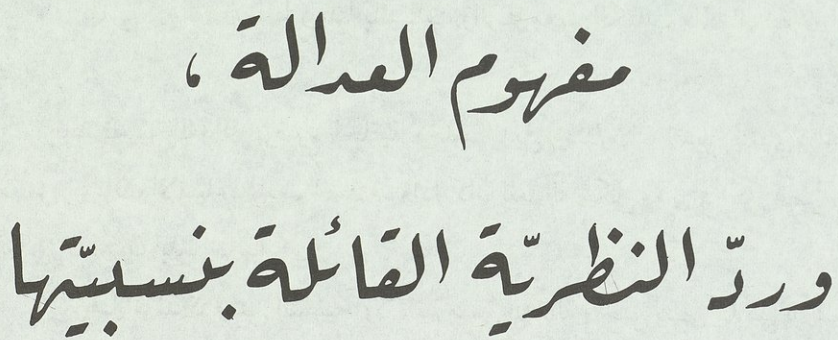 مفهوم العدالة ،
وردّ النظريّة القائلة بنسبيّتها